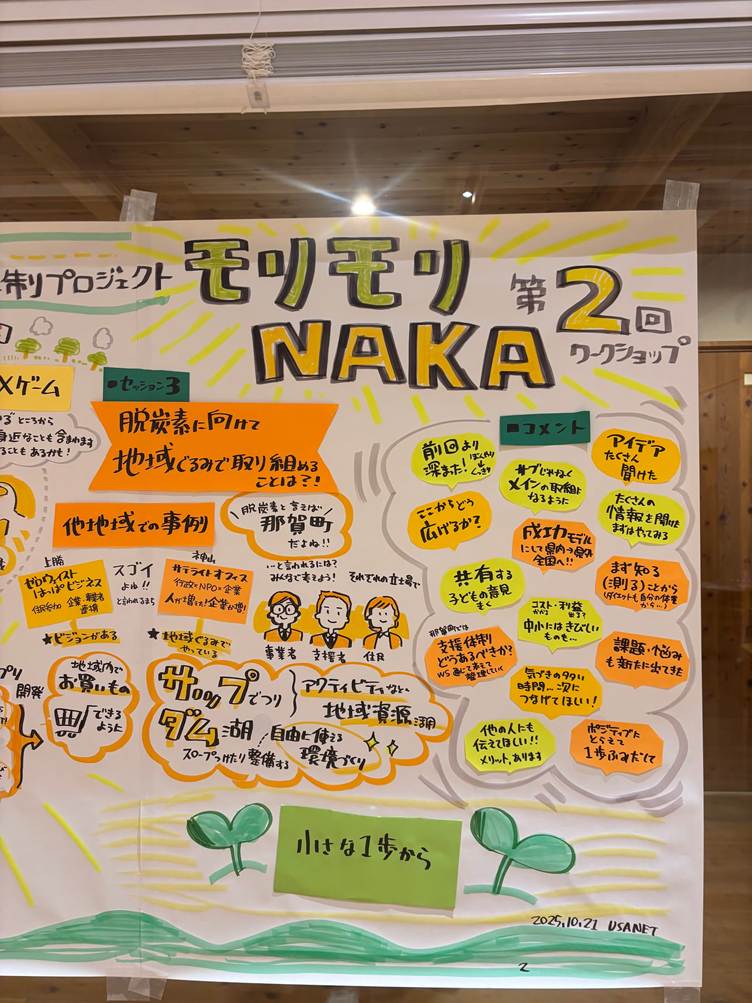 制プロジェクト
モリモリ
NAKA
第2回
ワークショップ
×ゲーム
ところから
身近なことも含まれます
ることもあるかも!
■セッション3
脱炭素に向けて
地域ぐるみで取り組める
ことは?!
他地域での事例
脱炭素と言えば
那賀町
だよね!!
…と言われるには?
みんなで考えよう!
それぞれの立場で
事業者 支援者 住民
上勝
ゼロウェイスト
はっぱビジネス
住民 企業
連携
★ビジョンがある
スゴイ
よね!!
と言われるまち
神山
サテライトオフィス
行政×NPO×企業
人が増える!企業が増
★地域ぐるみで
やっている
アプリ
開発
地域内で
お買いもの
できる
ように
サップでつり
ダム湖
スロープつけたり整備する
アクティビティなど、
地域資源活用
自由に使える
環境づくり
■コメント
前回より
深まった!
ぼんやり
くっきり
サブじゃなく
メインの取組に
なるように
アイデア
たくさん
聞けた
ここからどう
広げるか?
成功モデル
にして県内→県外
全国へ!!
たくさんの
情報を聞けた
まずはやってみる
共有する
子どもの意見
きく
コスト・利益
かかる 出る?
中小にはきびしい
ものも…
まず知る
(測る)ことから
(ダイエットも自分の体重
から…)
那賀町では
支援体制
どうあるべきか?
WS通じて考えて
整理していく
気づきの多い
時間…次に
つなげてほしい!
課題・悩み
も新たに出てきた
他の人にも
伝えてほしい!!
メリット、あります
ポジティブに
とらえて
1歩ふみだして
小さな1歩から
2025.10.21 USANET
2